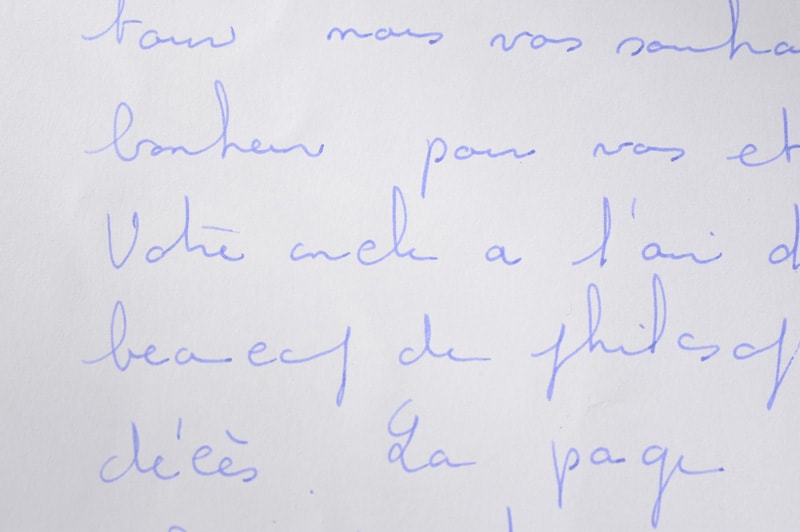 tour nous vous souha
bonheur pour vous et
Votre oncle a l'air d
beaucoup de philosop
décès. La page